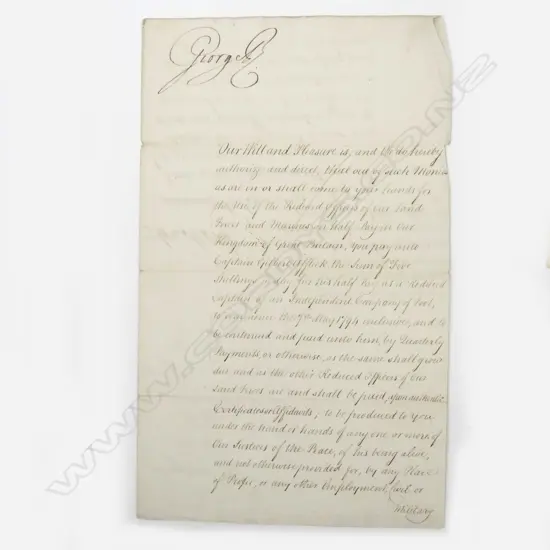 George R
Our Will and Pleasure is, and We do hereby
authorize and direct, that out of such Monies
as are or shall come to your hands for
the Use of the Reduced Officers of our Land
Forces and Marines on Half Pay in Our
Kingdom of Great Britain, You pay unto
Captain Gilbert the Sum of Five
Shillings a day for his half Pay as a Reduced
Captain of an Independent Company of Foot,
to commence the May 1794 inclusive, and to
be continued and paid unto him by Quarterly
Payments or otherwise, as the same shall grow
due and as the other Reduced Officers of Our
said Forces are and shall be paid, upon authentic
Certificates or Affidavits, to be produced to You
under the hand or hands of any one or more of
Our Justices of the Peace, of his being alive,
and not otherwise provided for, by any Place
of Profit, or any other Employment, Civil or
Military